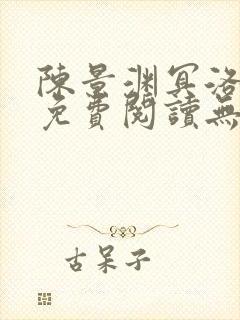 陳景淵冥洛
免費閱讀無
古呆子